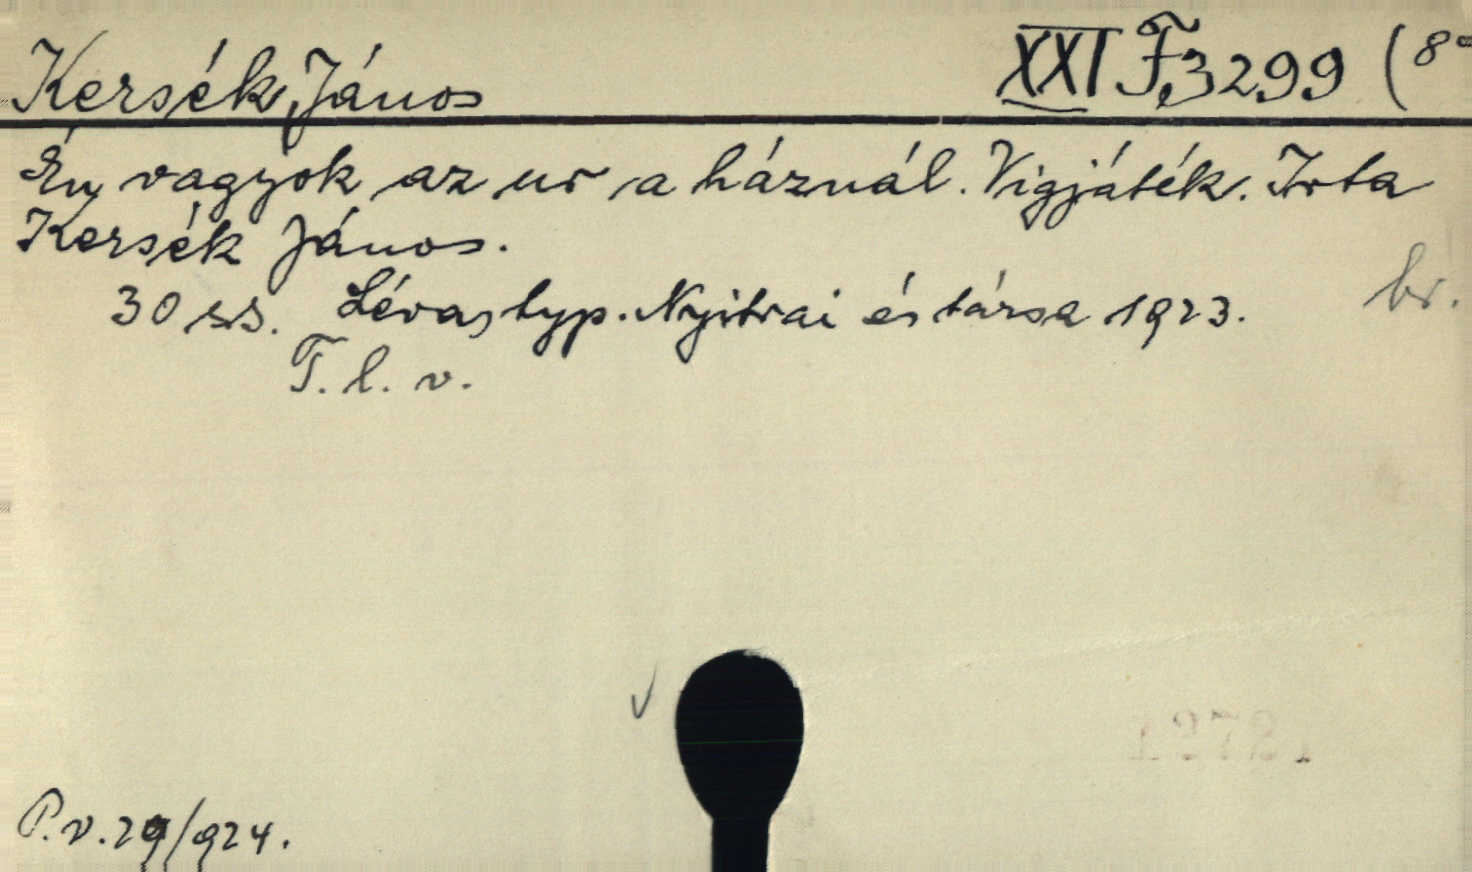 Kersék János XXI F3299 (8°
Én vagyok az ur a háznál. Vigjáték. Irta
Kersék János.
br.
30 ss. Léva, typ. Nyitrai és társa 1923.
T. l. v.
P. v. 29/924.